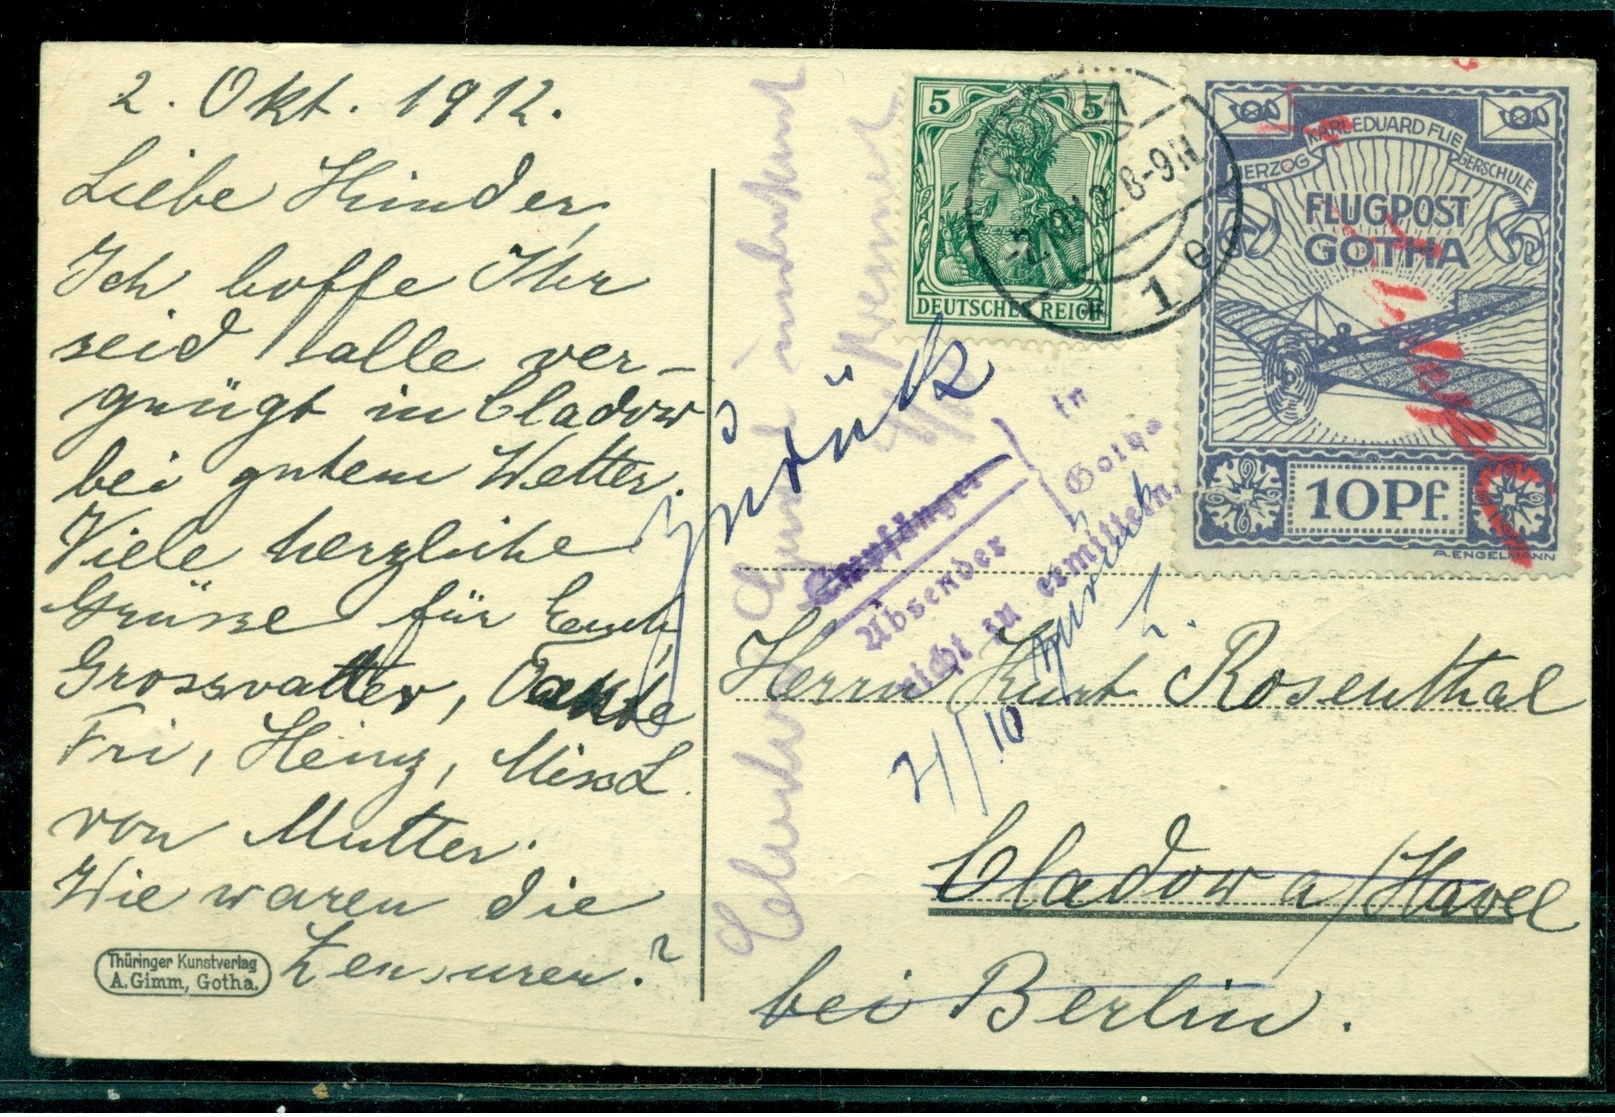 2. Okt. 1912.
Liebe Kinder,
Ich hoffe Ihr
seid alle ver-
gnügt in Cladow
bei gutem Wetter.
Viele herzliche
Grüsse für Euch,
Grossvatter, Tante
Fri, Heinz,
von Mutter.
Wie waren die
Zensuren?
Thüringer Kunstverlag
A. Gimm, Gotha.
5 5
DEUTSCHES REICH
-2.10.12. 8-9 N
* 1 e
HERZOG KARL EDUARD FLIEGERSCHULE
FLUGPOST
GOTHA
10 Pf.
A. ENGELMANN
Zurück
Empfänger
Absender
in
Gotha
nicht zu ermitteln.
zurück
Herrn Kurt Rosenthal
Cladow a/Havel
bei Berlin.